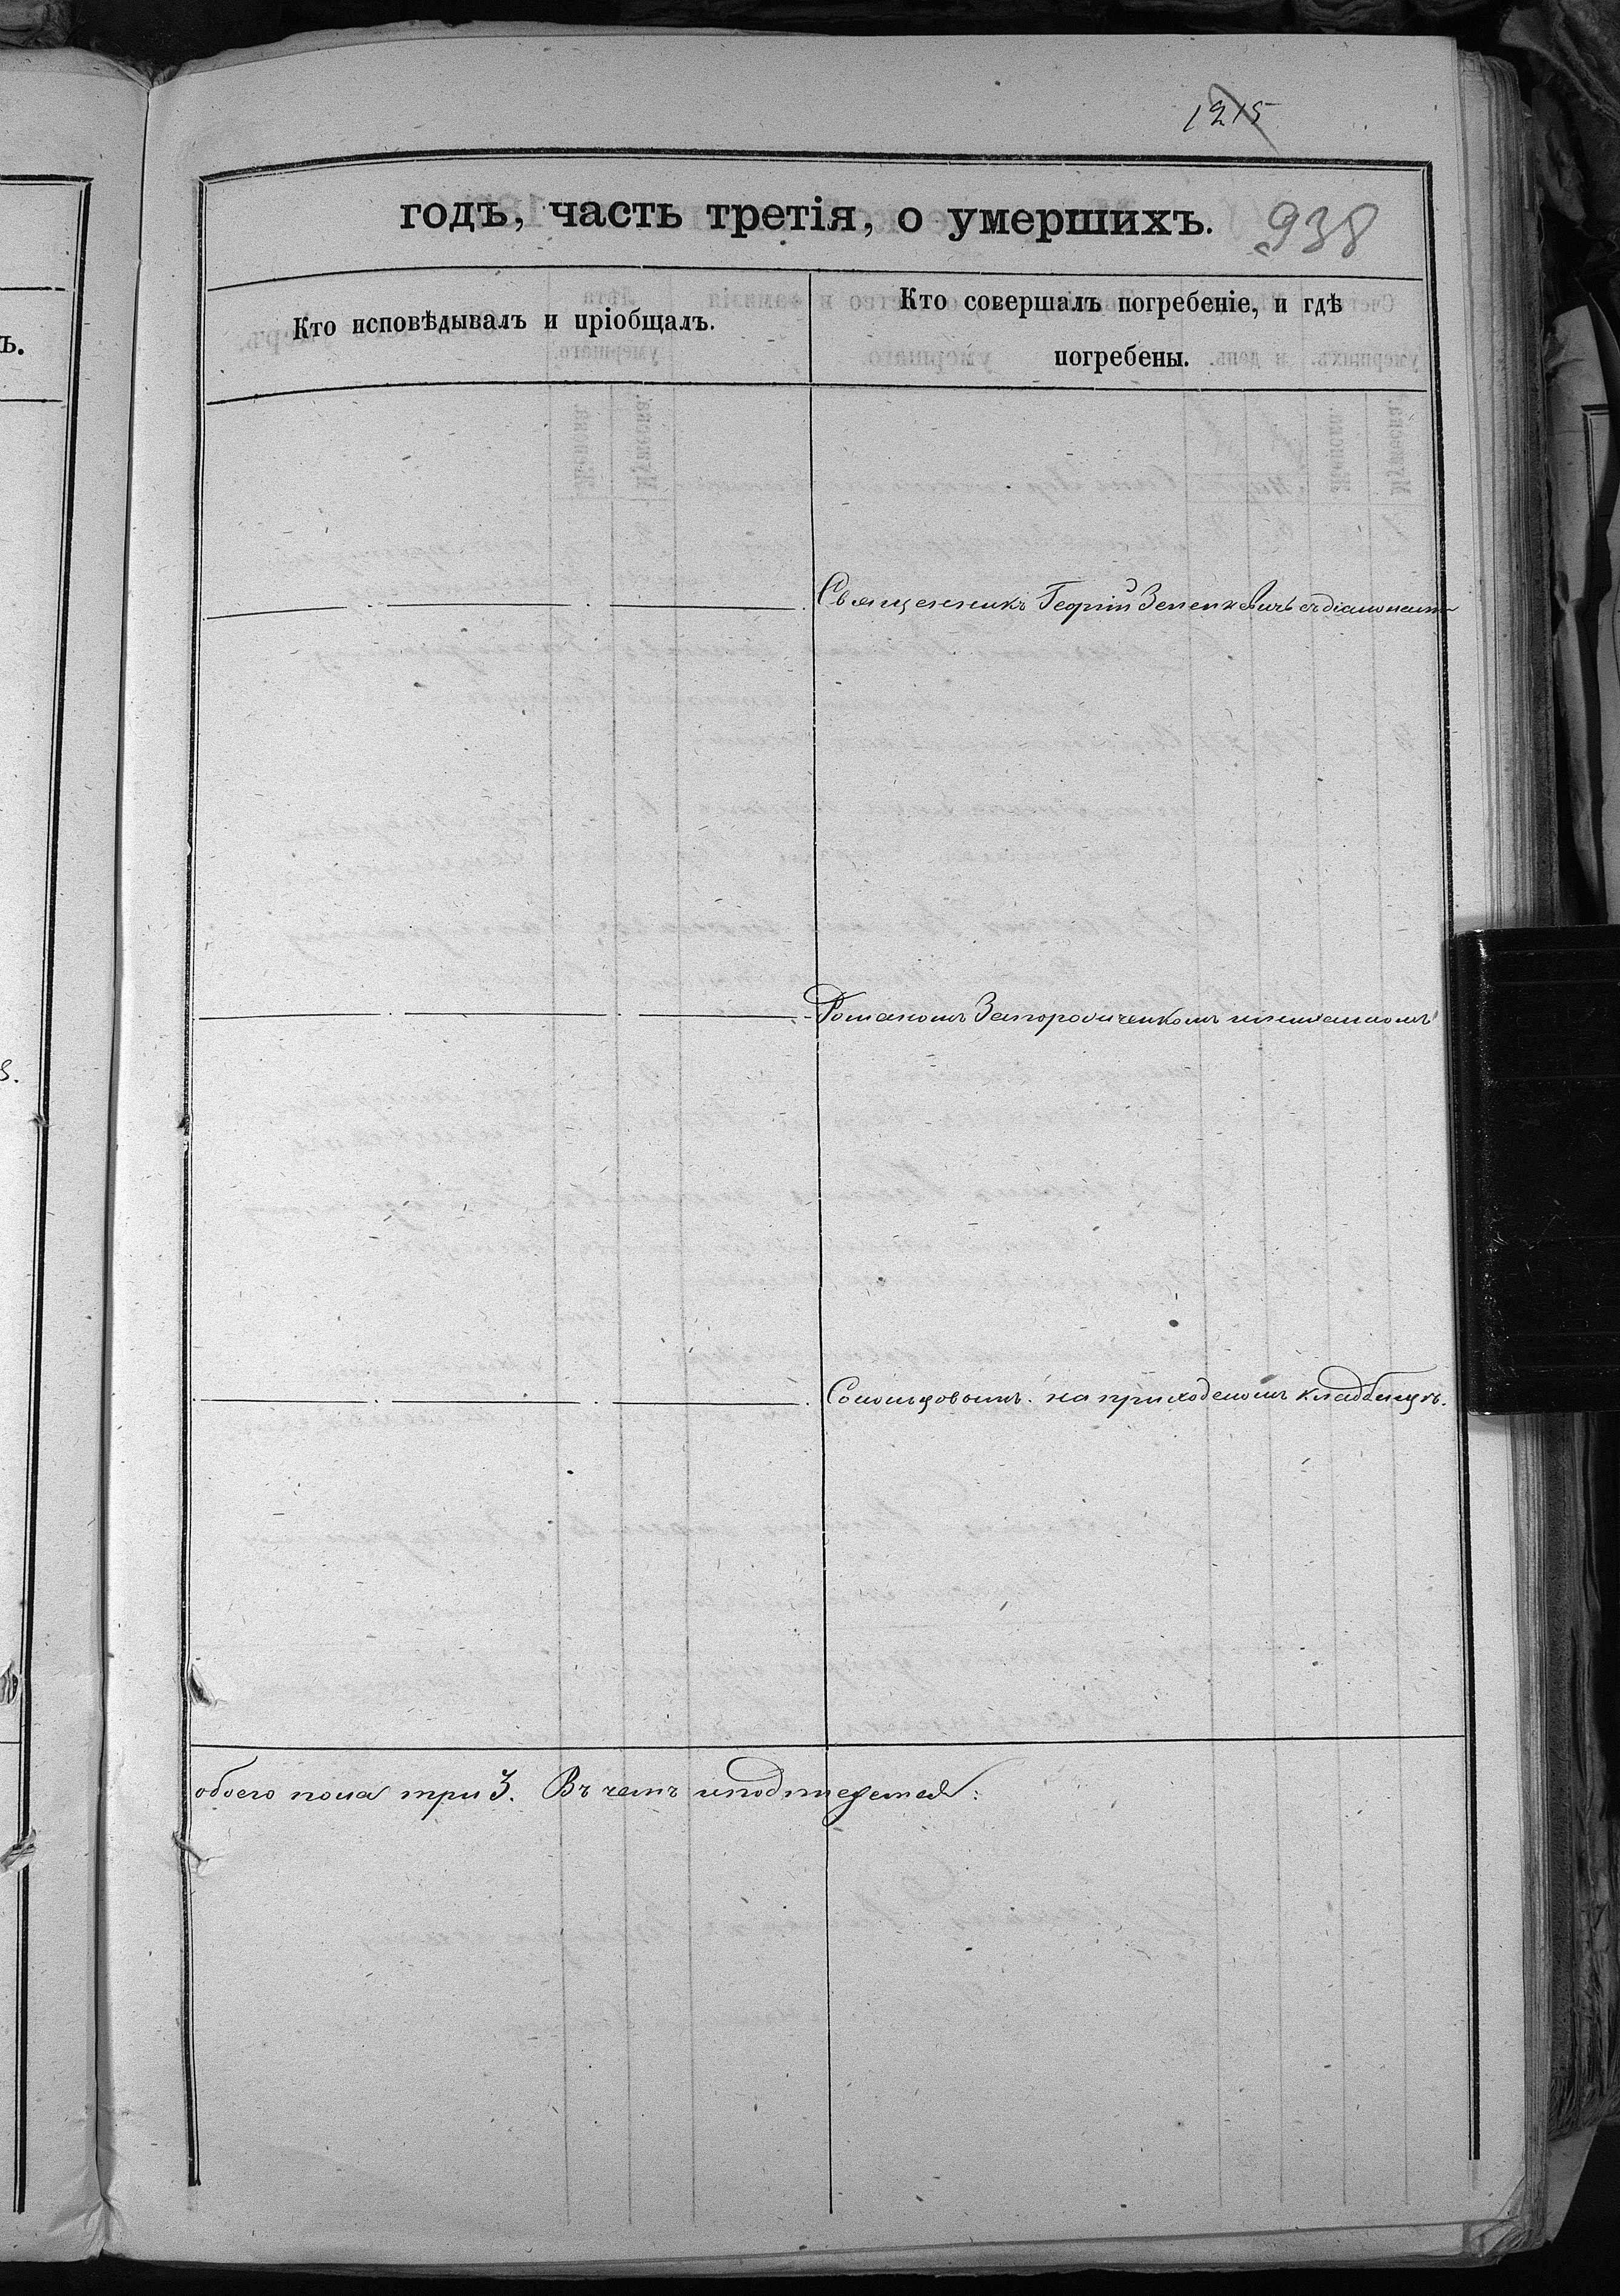 1215
годъ, часть третія, о умершихъ. 938
Кто исповѣдывалъ и пріобщалъ.
Кто совершалъ погребеніе, и гдѣ
погребены.
Священникъ Георгій Зеленкевичъ съ діакономъ
Романомъ
на приходскомъ кладбищѣ.
обоего пола три 3. Въ чемъ и подпишемся: